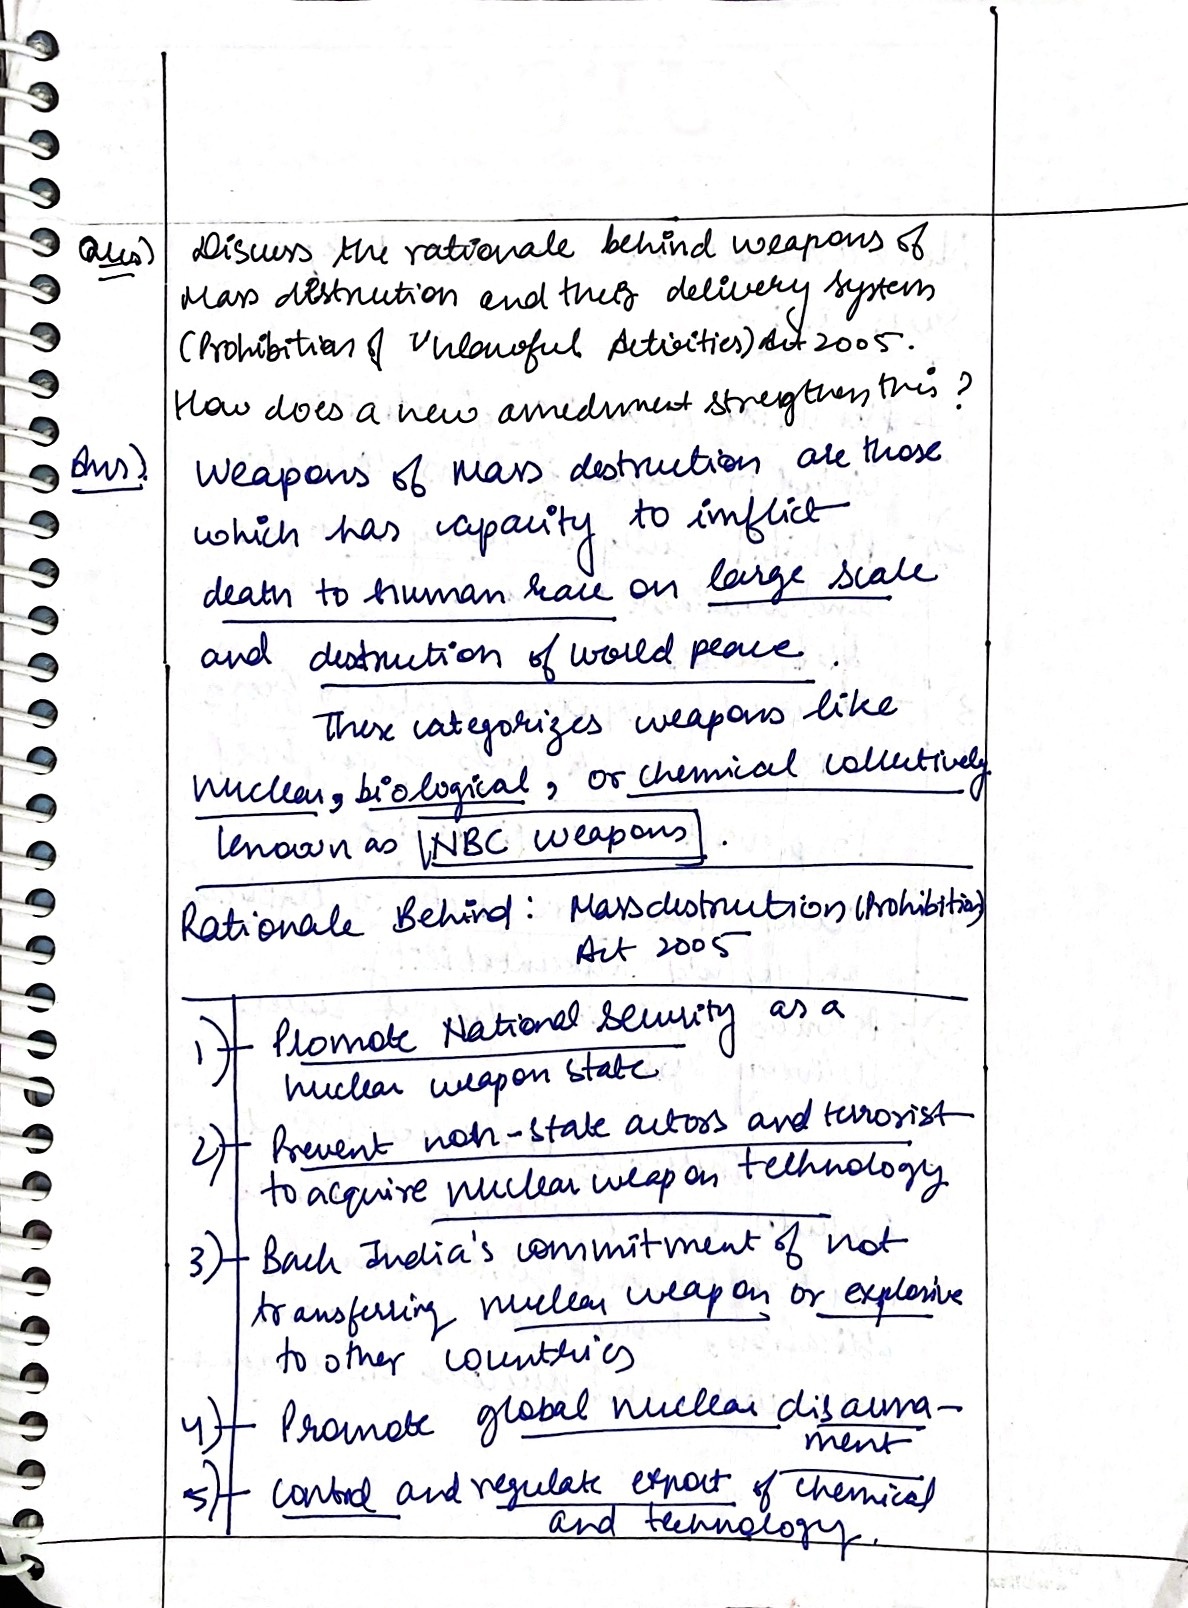 Ques) Discuss the rationale behind weapons of
Mass distruction and their delivery system
(Prohibition of Unlawful Activities) Act 2005.
How does a new amedment strengthen this?
Ans) Weapons of Mass destruction are those
which has capacity to inflict
death to human race on large scale
and destruction of world peace.
These categorizes weapons like
nuclear, biological, or chemical collectively
known as NBC weapons.
Rationale Behind: Mass destruction (Prohibition)
Act 2005
1) Promote National Security as a
nuclear weapon state
2) Prevent non-state actors and terrorist
to acquire nuclear weapon technology
3) Back India's commitment of not
transferring nuclear weapon or explosive
to other countries
4) Promote global nuclear disarma-
ment
5) control and regulate export of chemical
and technology.